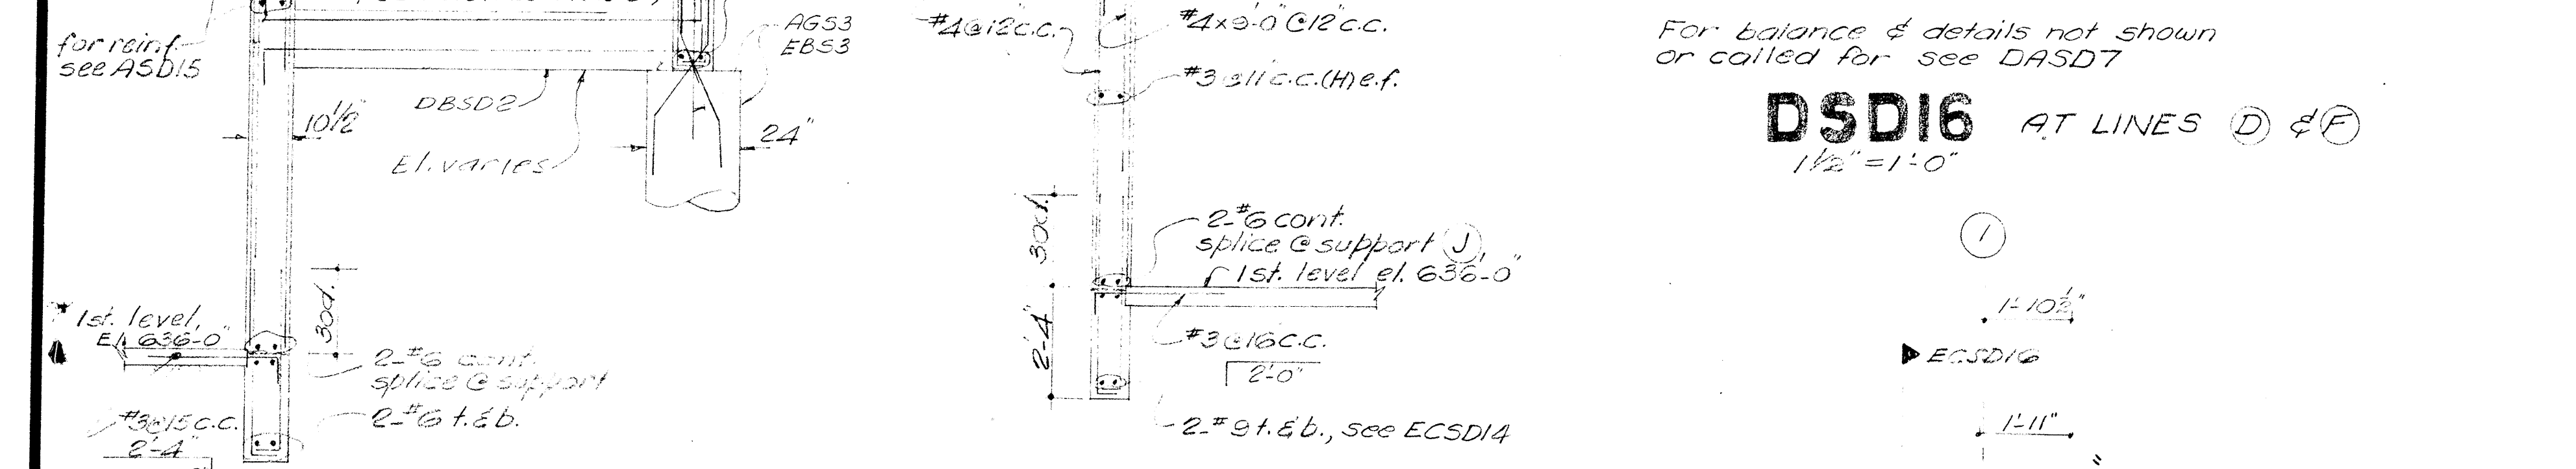 for reinf.
see ASD15
AGS3
EBS3
DBSD2
10½"
24"
El. varies
30d.
1st. level,
El. 636-0"
2-#6 cont.
splice @ support
2-#6 t.&b.
#3@15 c.c.
2'-4"
#4@12 c.c.
#4x9-0" @12" c.c.
#3@11 c.c.(H)e.f.
30d.
2'-4"
2-#6 cont.
splice @ support J,
1st. level el. 636-0"
#3@16 c.c.
2'-0"
2-#9 t.&b., see ECSD14
For balance & details not shown
or called for see DASD7
DSD16 AT LINES D & F
1½"=1'-0"
1
1'-10½"
ECSD16
1'-11"